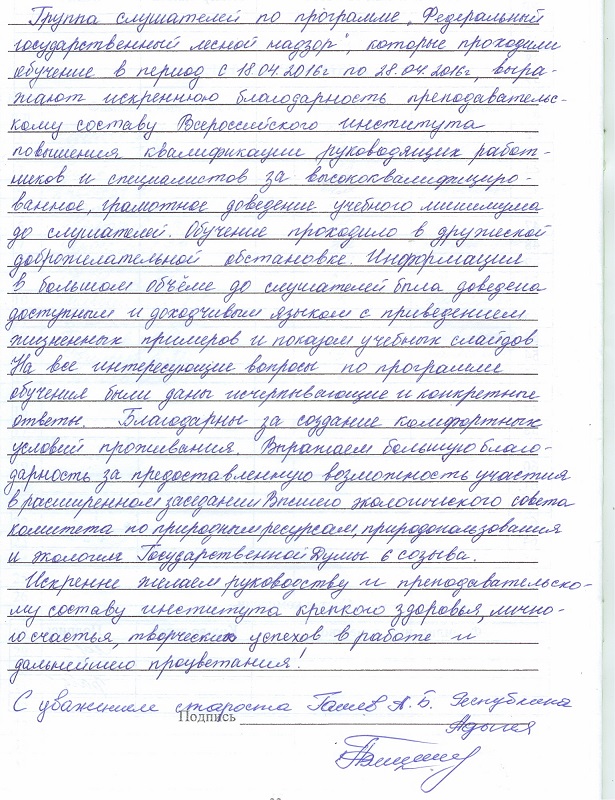 Группа слушателей по программе „Федеральный
государственный лесной надзор", которые проходили
обучение в период с 18.04.2016г по 28.04.2016г, выра-
жают искреннюю благодарность преподавательс-
кому составу Всероссийского института
повышения квалификации руководящих работ-
ников и специалистов за высококвалифициро-
ванное, грамотное доведение учебного минимума
до слушателей. Обучение проходило в дружеской
доброжелательной обстановке. Информация
в большом объёме до слушателей была доведена
доступным и доходчивым языком с приведением
жизненных примеров и показом учебных слайдов.
На все интересующие вопросы по программе
обучения были даны исчерпывающие и конкретные
ответы. Благодарны за создание комфортных
условий проживания. Выражаем большую благо-
дарность за предоставленную возможность участия
в расширенном заседании Высшего экологического совета
комитета по природным ресурсам, природопользования
и экологии Государственной Думы 6 созыва.
Искренне желаем руководству и преподавательско-
му составу института крепкого здоровья, лично-
го счастья, творческих успехов в работе и
дальнейшего процветания!
С уважением староста А. Б. Республика
Подпись
Адыгея